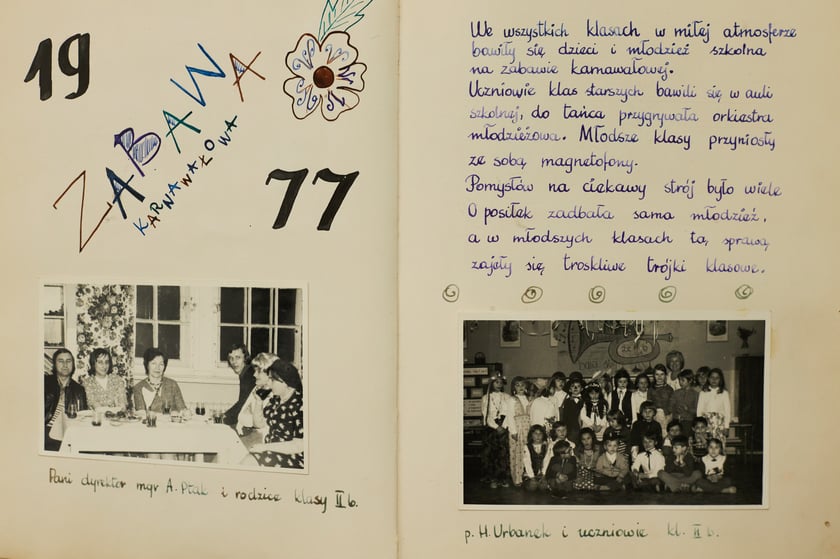 19
ZABAWA
KARNAWAŁOWA
77
Pani dyrektor mgr A. Ptak i rodzice klasy II b.
We wszystkich klasach w miłej atmosferze
bawiły się dzieci i młodzież szkolna
na zabawie karnawałowej.
Uczniowie klas starszych bawili się w auli
szkolnej, do tańca przygrywała orkiestra
młodzieżowa. Młodsze klasy przyniosły
ze sobą magnetofony.
Pomysłów na ciekawy strój było wiele
O posiłek zadbała sama młodzież,
a w młodszych klasach tą sprawą
zajęły się troskliwe trójki klasowe.
p. H. Urbanek i uczniowie kl. II b.